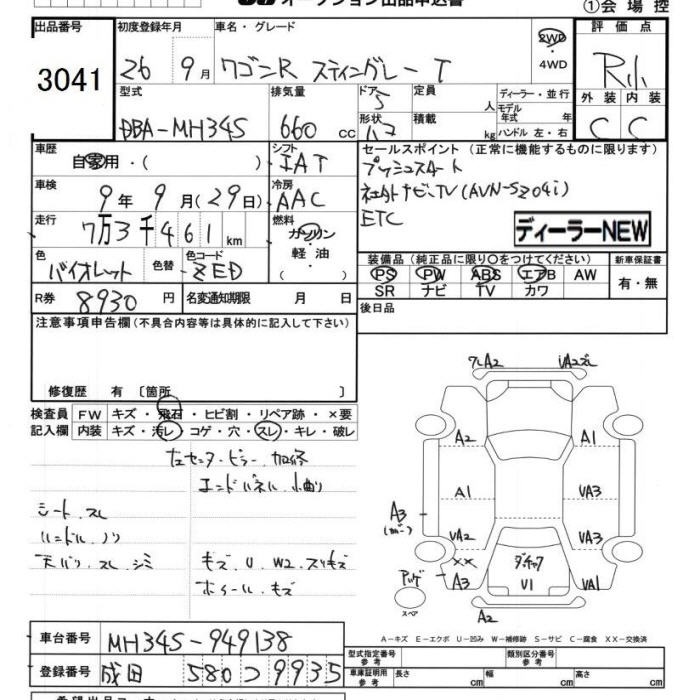 オークション出品申込書
①会場控
出品番号 初度登録年月 車名・グレード 評価点
3041 26 9月 ワゴンR スティングレー T 2WD ・4WD R小
型式 排気量 ドア 定員 ディーラー・並行 外装 内装
DBA-MH34S 660 cc 5 人 モデル年式 年 C C
形状 積載 kg ハンドル 左・右
車歴 シフト セールスポイント (正常に機能するものに限ります)
自家用・( ) IAT プッシュスタート
車検 冷房
9年9月(29日) AAC ナビ、TV (AVN-SZ04i)
走行 燃料 ETC
7万3千461km ガソリン・軽油・ ディーラーNEW
色 色替 色コード 装備品 (純正品に限り○をつけてください) 新車保証書
バイオレット ZED PS PW ABS エアB AW 有・無
SR ナビ TV カワ
R券 8930円 名変通知期限 月 日
後日品
注意事項申告欄(不具合内容等は具体的に記入して下さい)
修復歴 有 〔箇所 〕
検査員 FW キズ・飛石・ヒビ割・リペア跡・×要
記入欄 内装 キズ・汚レ・コゲ・穴・スレ・キレ・破レ
左センターピラー 加修
エンドパネル 小曲り
シート、スレ
ハンドル、
天バリ、スレ、シミ キズ、U、W2、スリキズ
ホイール、キズ
A2
A2
A2 A1
A1 UA3
A3
UA2 UA3
××
A3 U1 UA1
スペア
A2
A-キズ E-エクボ U-凹み W-補修跡 S-サビ C-腐食 XX-交換済
車台番号 MH34S-949138
登録番号 成田 580 つ 9935
型式指定番号 参考 類別区分番号 参考
車庫証明用 参考 長さ cm 幅 cm 高さ cm